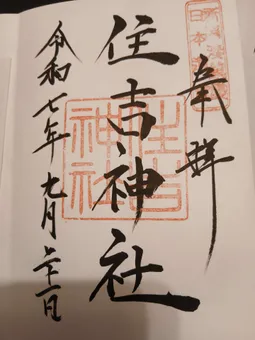 奉拝
住吉神社
令和七年九月二十一日
住吉
神社